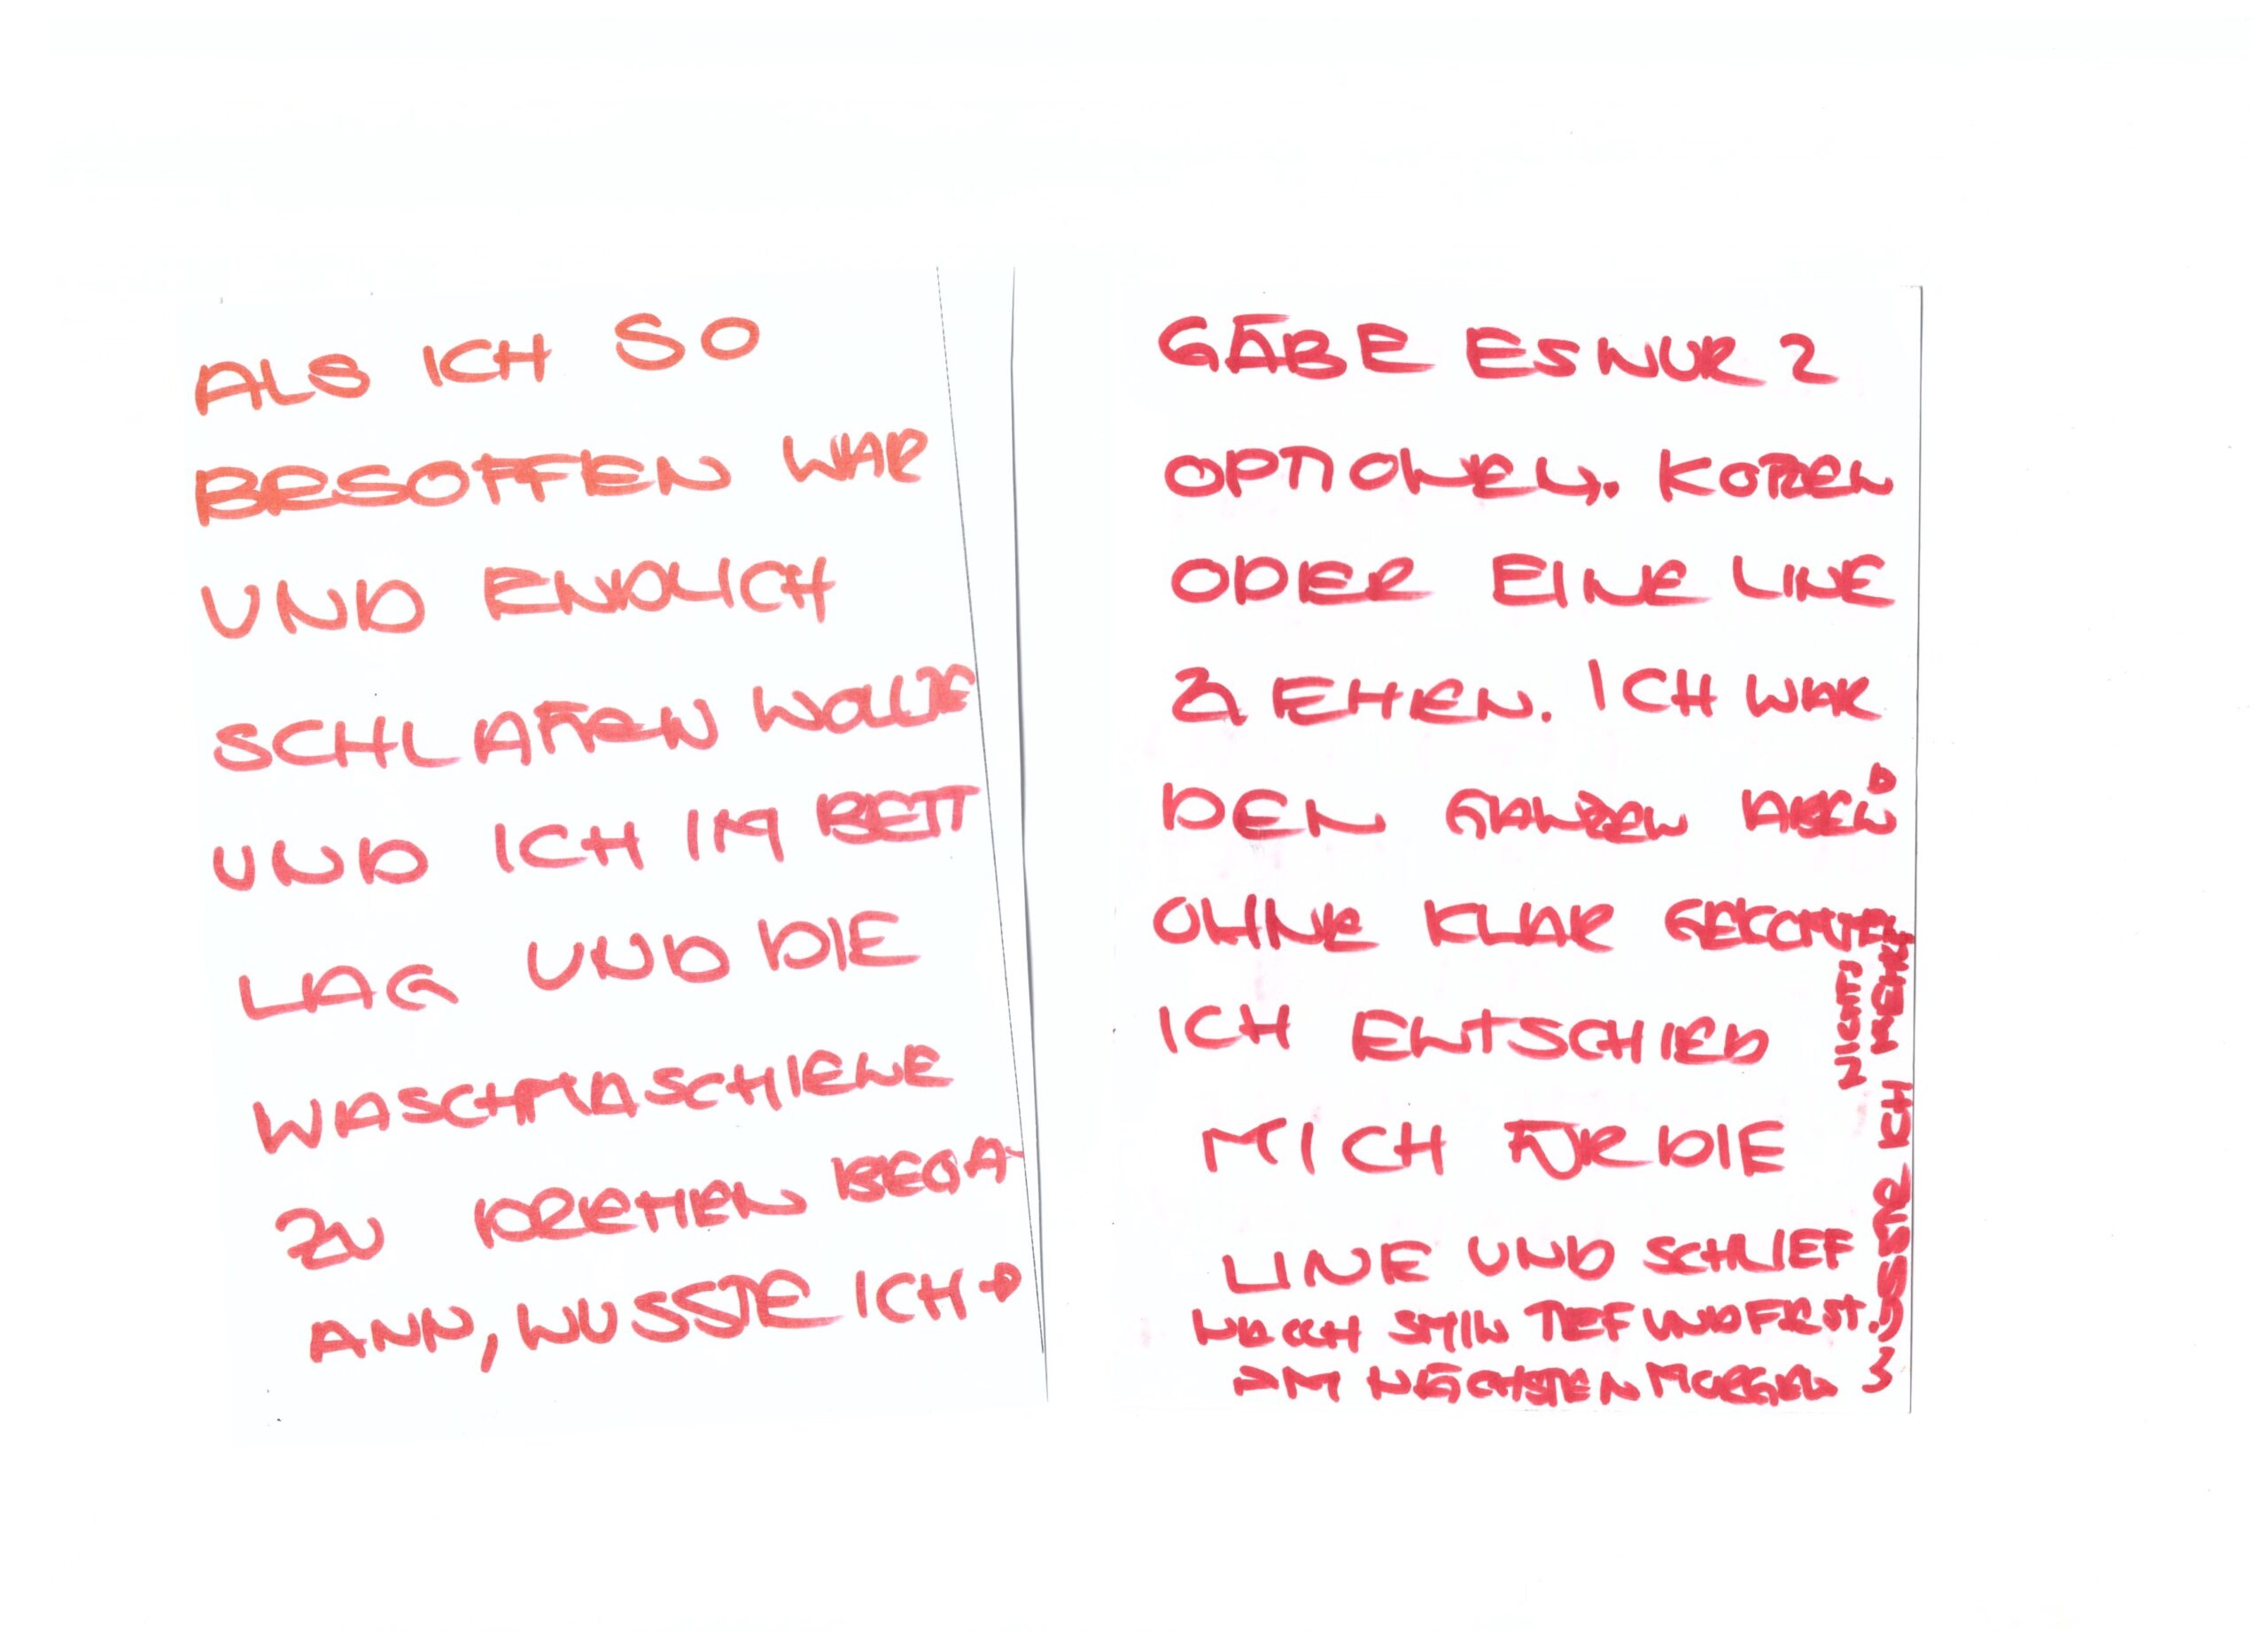 ALS ICH SO
BESOFFEN WAR
UND ENDLICH
SCHLAFEN WOLLTE
UND ICH IM BETT
LAG UND DIE
WASCHMASCHIENE
ZU DREHEN BEGA-
ANN, WUSSTE ICH
GÄBE ES NUR 2
OPTIONEN. KOTZEN
ODER EINE LINE
ZIEHEN. ICH WAR
DEN GANZEN ABEND
OHNE KLAR GEKOMMEN
ICH ENTSCHIED
MICH FÜR DIE
LINE UND SCHLIEF
TIEF UND FEST.
AM NÄCHSTEN MORGEN
WUSSTE ICH MEINEN
NICHT